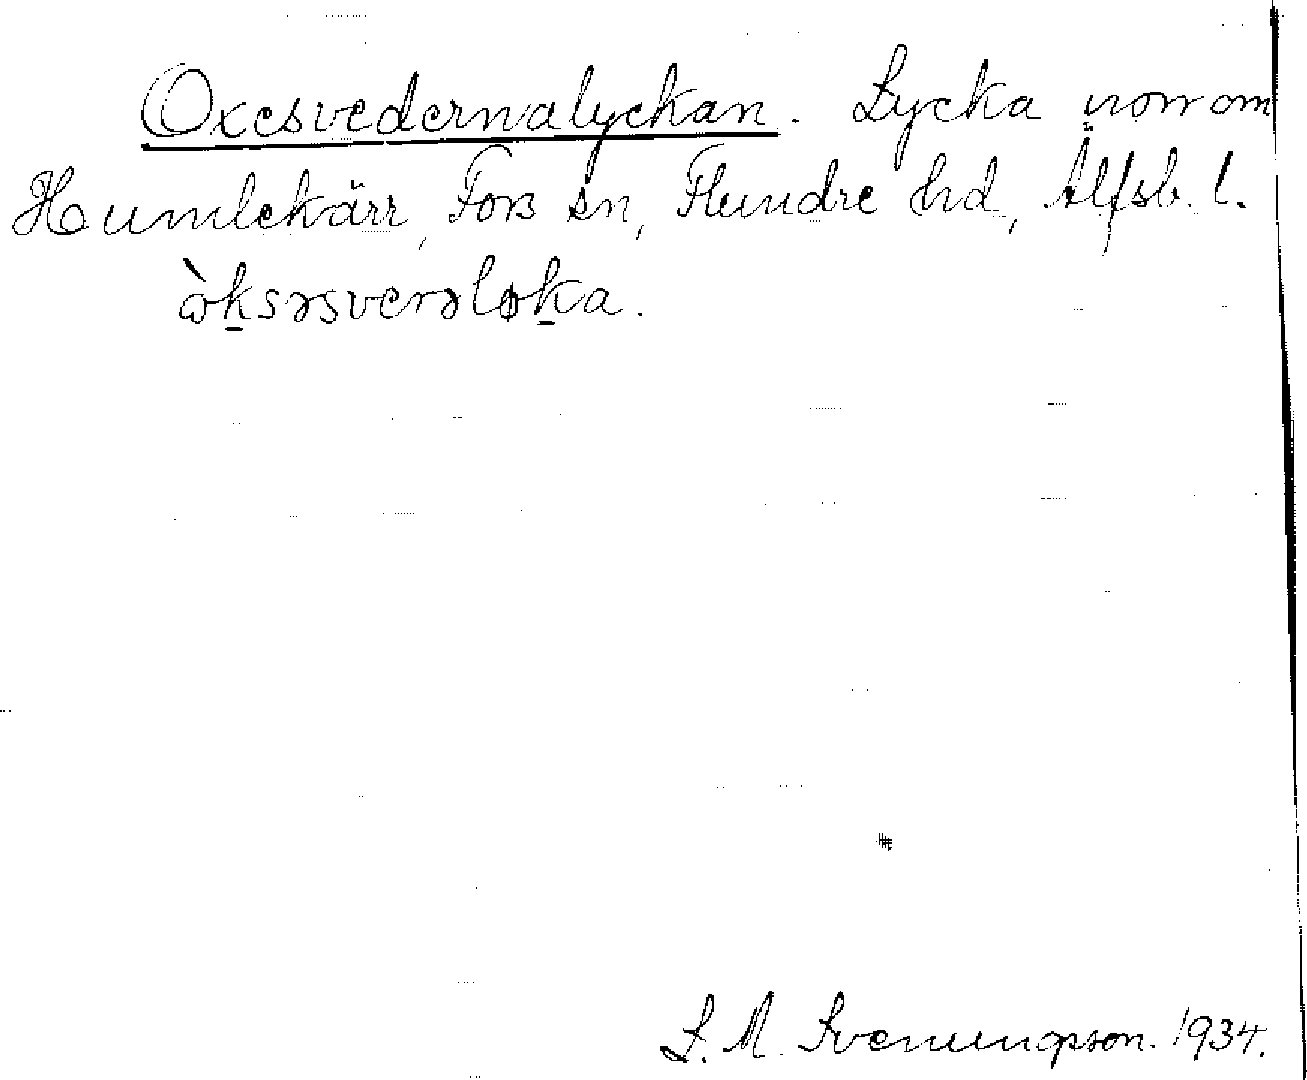 Oxesvedernalyckan. Lycka norr om
Humlekärr, Fors sn, Flundre hd, Älfsb. l.
ὼksəsverəlɵka.
S. M. Svenungson. 1934.